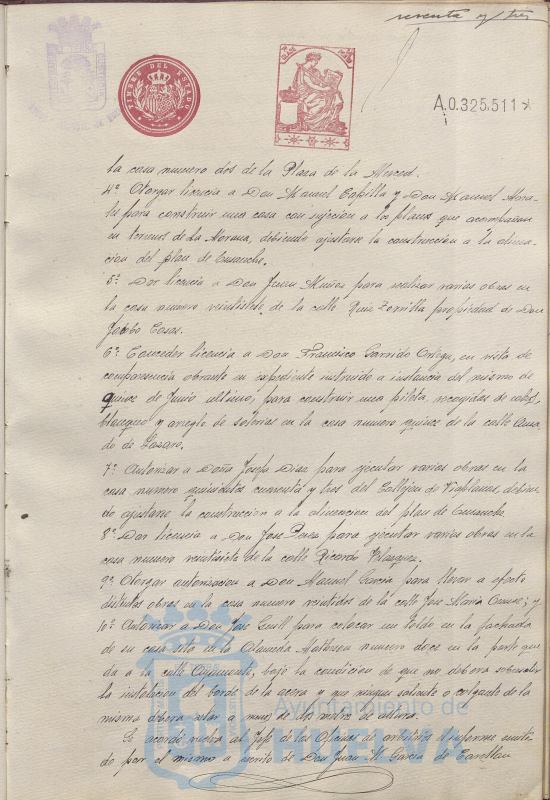 y tres
TIMBRE DEL ESTADO
A.0.325.511*
la casa numero dos de la Plaza de la Merced.
4º Otorgar licencia a Don Manuel Espilla y Don Manuel
para construir una casa con sujecion a los planos que acompañan
en terrenos de La Morana, debiendo ajustarse la construccion a la alinea-
cion del plan de Ensanche.
5º Dar licencia a Don Juan Muñoz para realizar varias obras en
la casa numero veintisiete de la calle Ruiz Zorrilla propiedad de Don
Jacobo Cosas.
6º Conceder licencia a Don Francisco Garrido Ortega, en vista de
comparecencia obrante en expediente instruido a instancia del mismo de
quince de Junio ultimo, para construir una pileta, recogidas de
blanqueo y arreglo de solerias en la casa numero quince de la calle
do de Lazaro.
7º Autorizar a Doña Josefa Diaz para ejecutar varias obras en la
casa numero quinientos cuarenta y tres del Callejon de debien-
do ajustarse la construccion a la alineacion del plan de Ensanche
8º Dar licencia a Don Jose Perez para ejecutar varias obras en la
casa numero veintisiete de la calle Ricardo Velazquez.
9º Otorgar autorizacion a Don Manuel Garcia para llevar a efecto
distintas obras en la casa numero veintidos de la calle Jose Maria y
10º Autorizar a Don Jose Guill para colocar un toldo en la fachada
de su casa sita en la Alameda numero doce en la parte que
da a la calle Ayamonte, bajo la condicion de que no debera sobresalir
la instalacion del borde de la acera y que ningun saliente o colgante de la
misma debera estar a menos de dos metros de altura.
Se acordo al Jefe de las Oficinas de arbitrios el informe emiti-
do por el mismo a escrito de Don Juan M. Garcia de
Ayuntamiento de
HUELVA